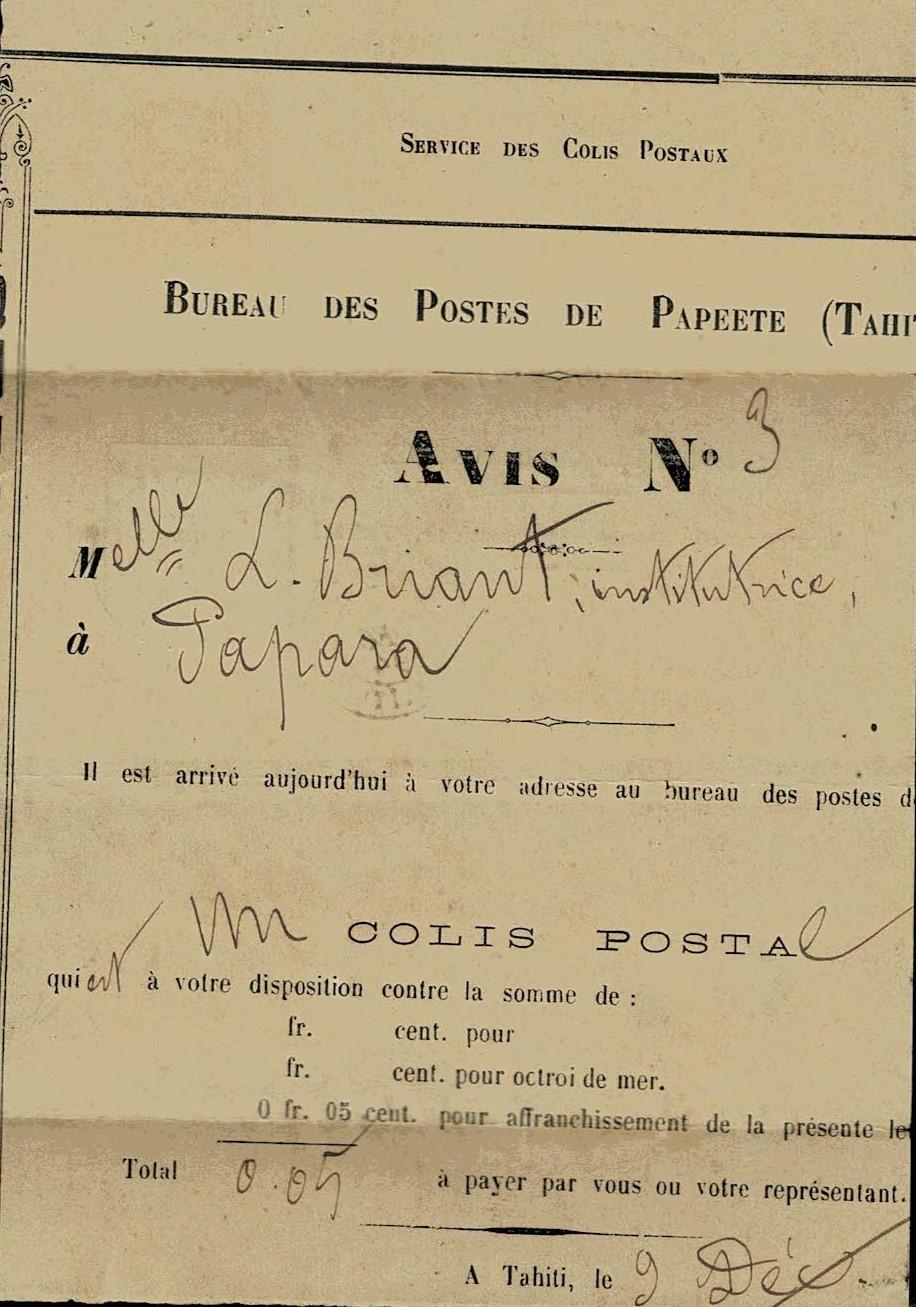 SERVICE DES COLIS POSTAUX
BUREAU DES POSTES DE PAPEETE (TAHI
AVIS Nº 3
Melle L. Briant, institutrice,
à Papara
Il est arrivé aujourd'hui à votre adresse au bureau des postes d
Un COLIS POSTAl
qui est à votre disposition contre la somme de :
fr. cent. pour
fr. cent. pour octroi de mer.
0 fr. 05 cent. pour affranchissement de la présente le
Total 0.05 à payer par vous ou votre représentant.
A Tahiti, le 9 Déc